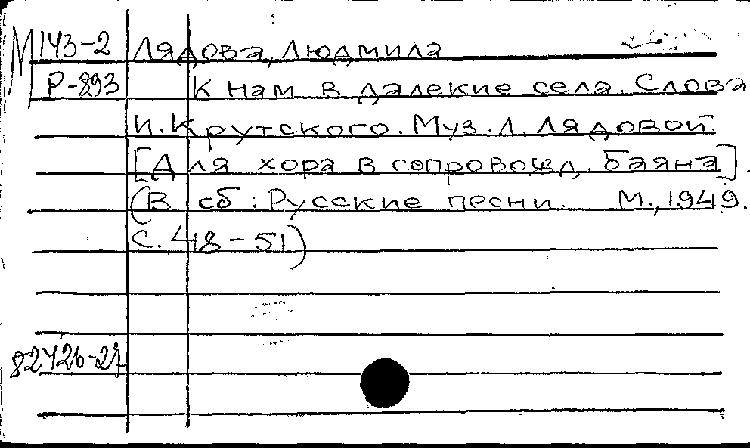 М143-2 Лядова, Людмила
Р-893 К нам в далекие села. Слова
И. Крутского. Муз. Л. Лядовой
[Для хора в сопровожд. баяна].
(В сб: Русские песни. М., 1949.
С. 48-51)